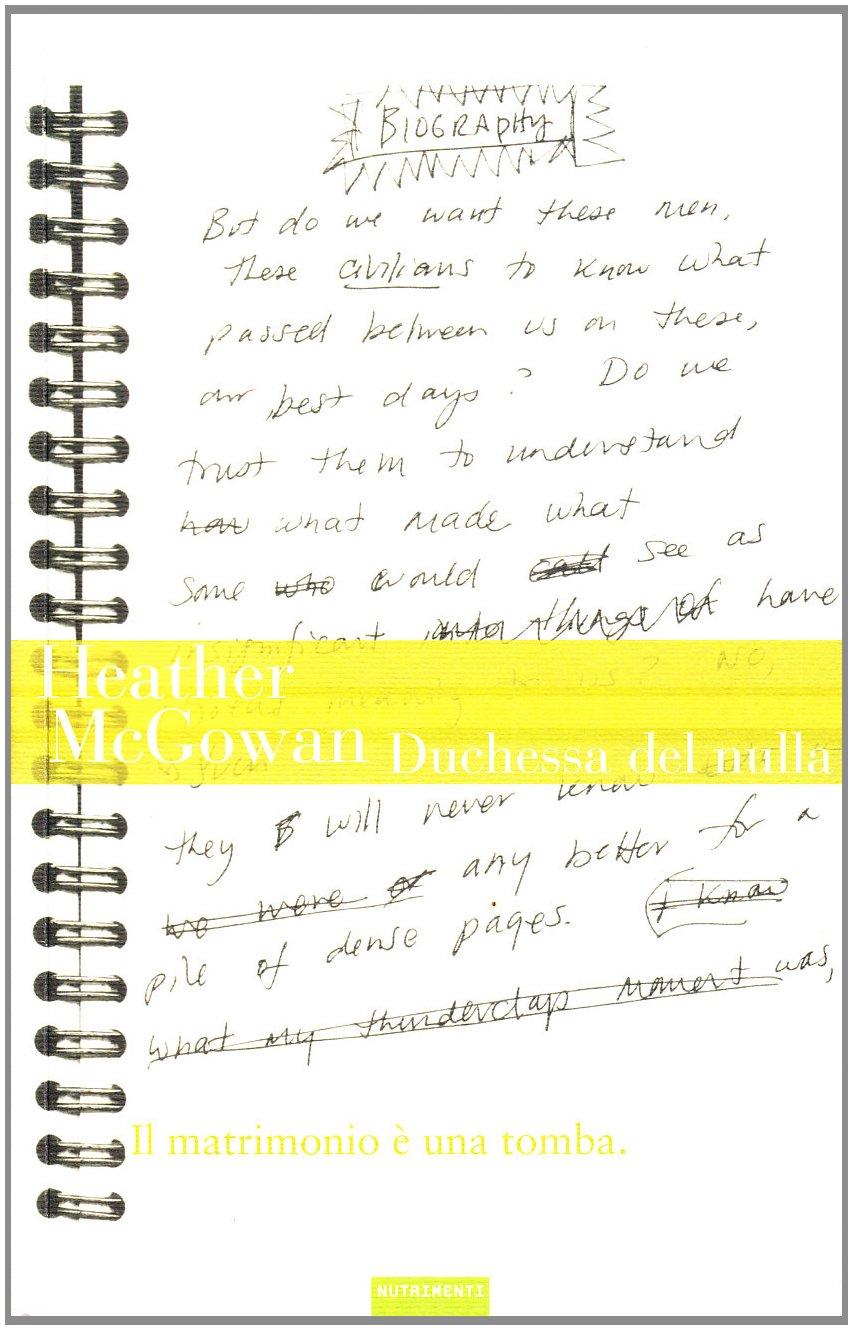 BIOGRAPHY
But do we want these men,
these civilians to know what
passed between us on these,
our best days? Do we
trust them to understand
how what made what
some who would call see as
insignificant into things of have
great meaning to us? No,
Heather
McGowan
Duchessa del nulla
they will never know
we were or any better for a
pile of dense pages. I know
what my thunderclap moment was,
Il matrimonio è una tomba.
NUTRIMENTI